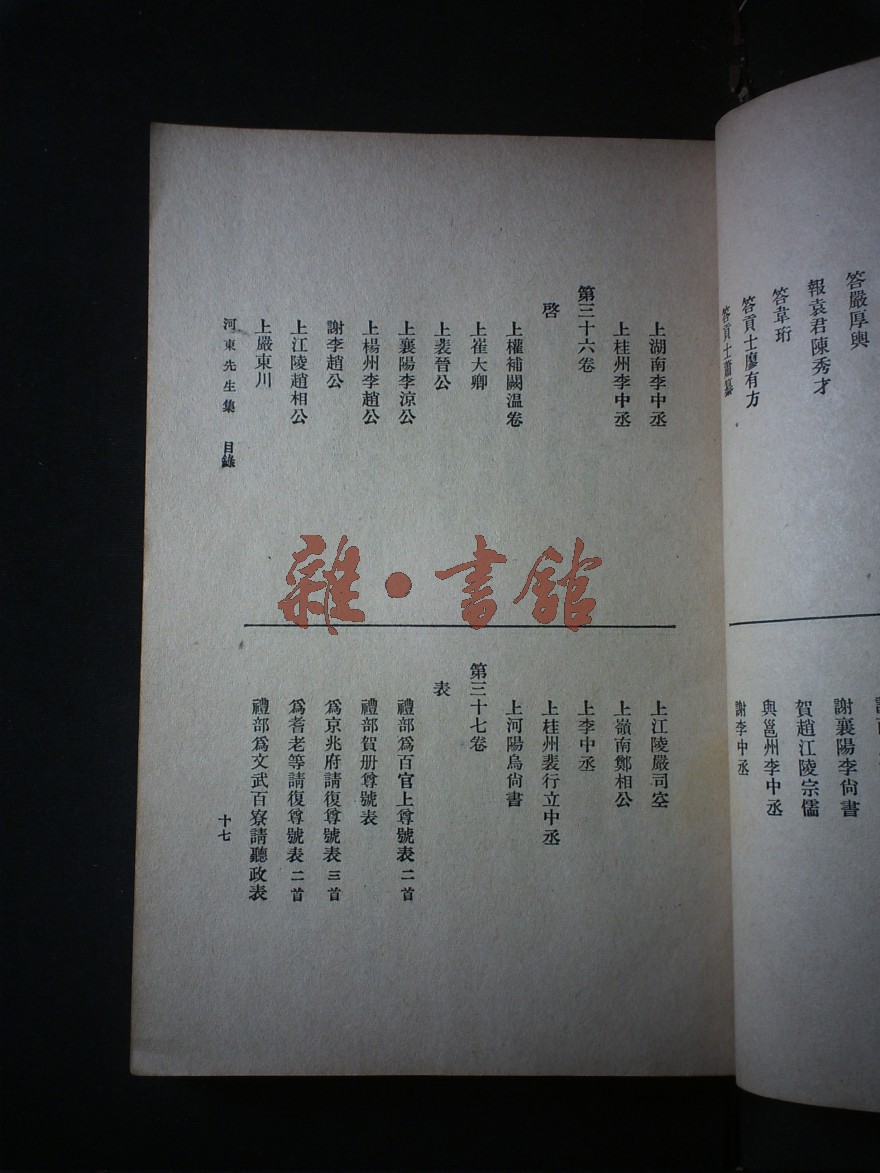 答嚴厚輿
報袁君陳秀才
答韋珩
答貢士廖有方
答貢士蕭纂
謝襄陽李尙書
賀趙江陵宗儒
與邕州李中丞
謝李中丞
上湖南李中丞
上桂州李中丞
第三十六卷
啓
上權補闕温卷
上崔大卿
上裴晉公
上襄陽李涼公
上楊州李趙公
謝李趙公
上江陵趙相公
上嚴東川
上江陵嚴司空
上嶺南鄭相公
上李中丞
上桂州裴行立中丞
上河陽烏尙書
第三十七卷
表
禮部爲百官上尊號表二首
禮部賀册尊號表
爲京兆府請復尊號表三首
爲耆老等請復尊號表二首
禮部爲文武百寮請聽政表
河東先生集 目錄
十七
雜·書館